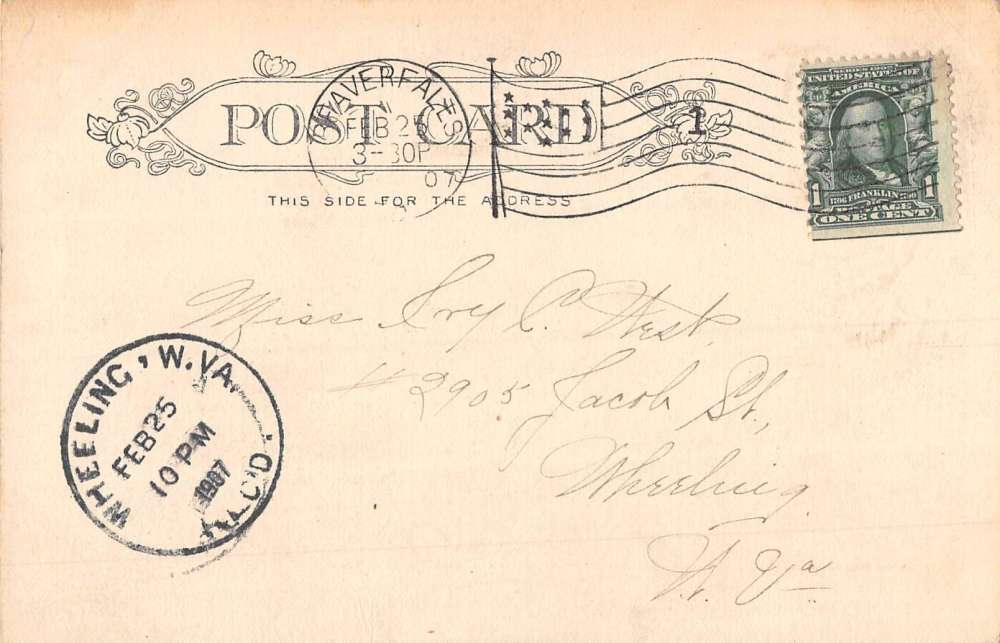 POST CARD
BEAVER FALLS
FEB 25
3-30P
07
1
THIS SIDE FOR THE ADDRESS
SERIES 1902
UNITED STATES OF
AMERICA
1 1
1706 FRANKLIN 1790
POSTAGE
ONE CENT
Miss Ivy C. West,
# 2905 Jacob St.,
Wheeling
W. Va
WHEELING, W. VA.
FEB 25
10 PM
1907
REC'D.